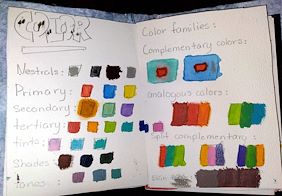 COLOR
Neutrals:
Primary:
Secondary:
tertiary:
tints:
Shades:
tones:
Color families:
Complementary colors:
analogous colors:
Split complementary:
Skin